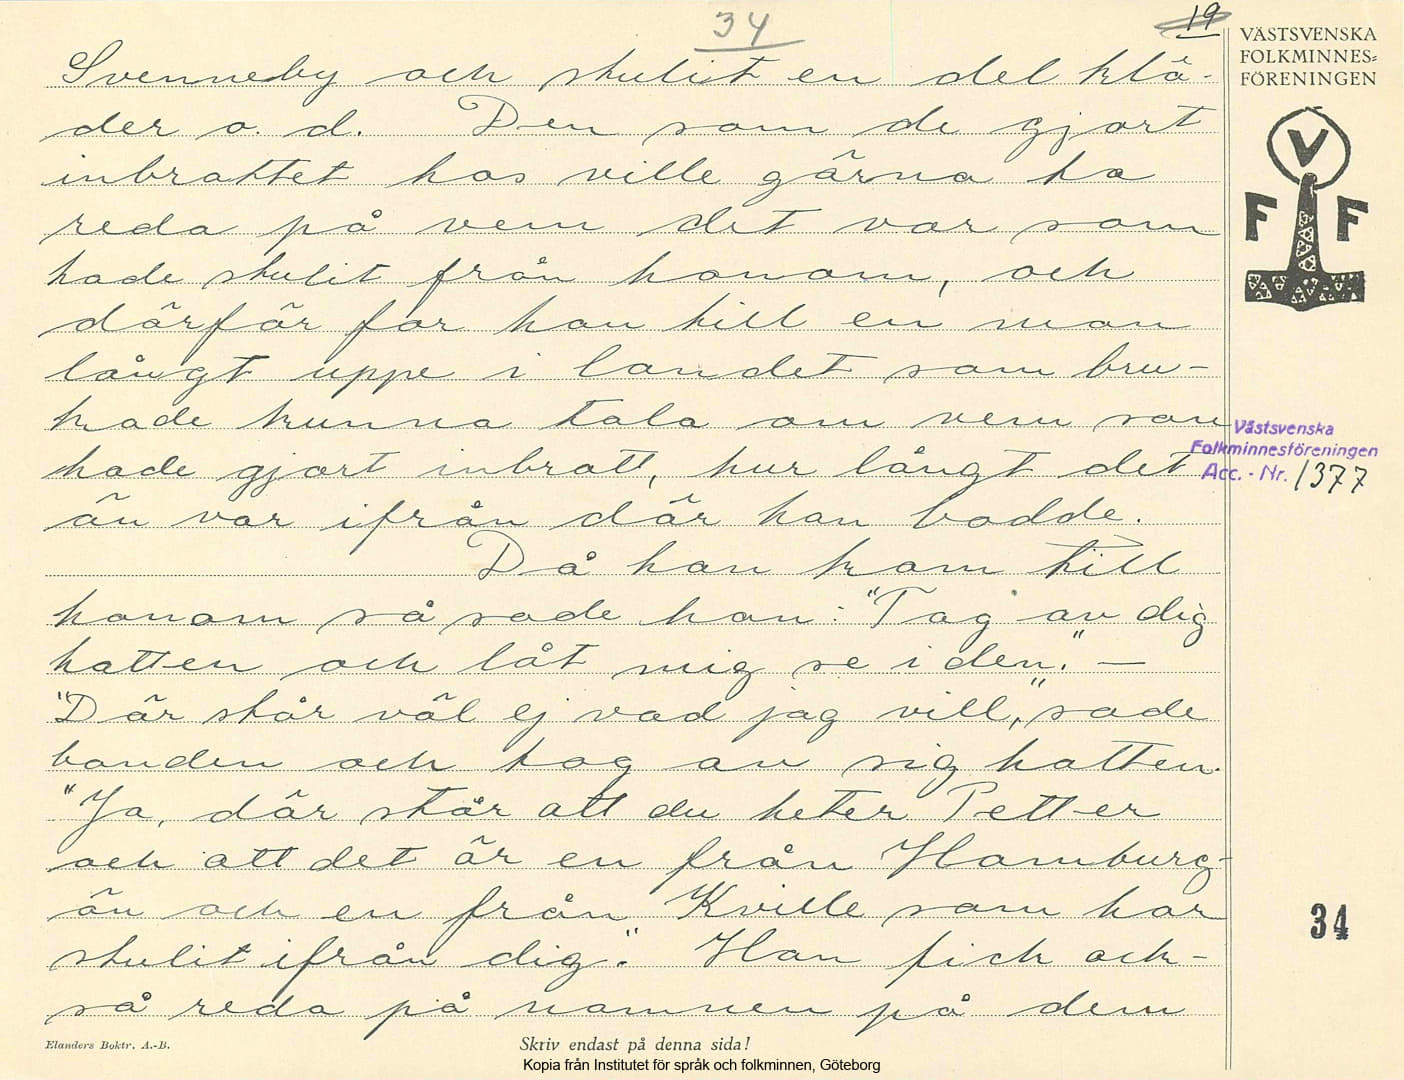 34
19
VÄSTSVENSKA
FOLKMINNES=
FÖRENINGEN
V
F F
Svenneby och stulit en del klä-
der o. d. Den som de gjort
inbrottet hos ville gärna ha
reda på vem det var som
hade stulit från honom, och
därför for han till en man
långt uppe i landet som bru-
kade kunna tala om vem som
hade gjort inbrott, hur långt det
än var ifrån där han bodde.
Västsvenska
Folkminnesföreningen
Acc. - Nr. 1377
Då han kom till
honom så sade han: "Tag av dig
hatten och låt mig se i den." —
"Där står väl ej vad jag vill," sade
bonden och tog av sig hatten.
"Ja, där står att du heter Petter
och att det är en från Hamburg-
ön och en från Kville som har
stulit ifrån dig." Han fick ock-
så reda på namnen på dem
34
Elanders Boktr. A.-B.
Skriv endast på denna sida!
Kopia från Institutet för språk och folkminnen, Göteborg